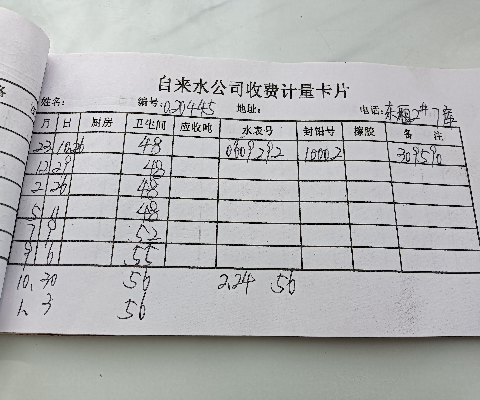 自来水公司收费计量卡片
姓名: 编号: 020445 地址: 电话: 2# 7库
月 日 厨房 卫生间 应收吨 水表号 封钳号 橡胶 备 注
23. 10.26 48 0909292 10002 309590
12 29 48
2 26 48
5 48
7 8 52
9 6 55
10. 30 56 2.24 56
1. 3 56